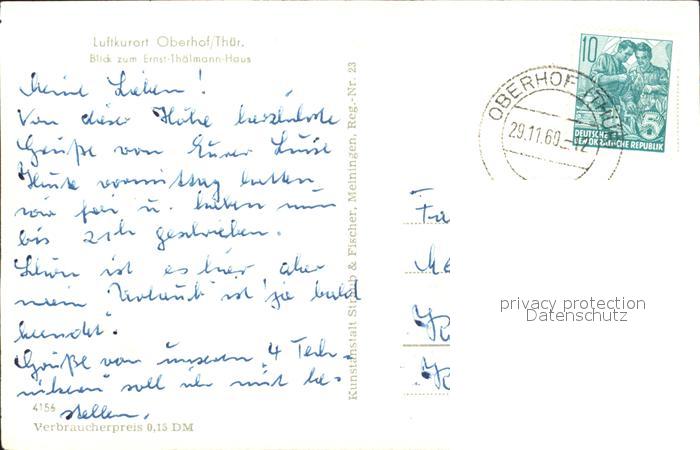 Luftkurort Oberhof/Thür.
Blick zum Ernst-Thälmann-Haus
Meine Lieben!
Von dieser Höhe herzlichste
Grüße von Eurer Luise
Heute vormittag hatten
wir frei u. haben nun
bis 21h geschrieben.
Schön ist es hier, aber
mein "Urlaub" ist ja bald
beendet.
Grüße von unseren 4 Tech-
nikern soll ich mit be-
stellen.
4156
Verbraucherpreis 0,15 DM
Kunstanstalt Straub & Fischer, Meiningen. Reg.-Nr. 23
OBERHOF (THÜR)
29.11.60
10
5
DEUTSCHE
DEMOKRATISCHE REPUBLIK
privacy protection
Datenschutz